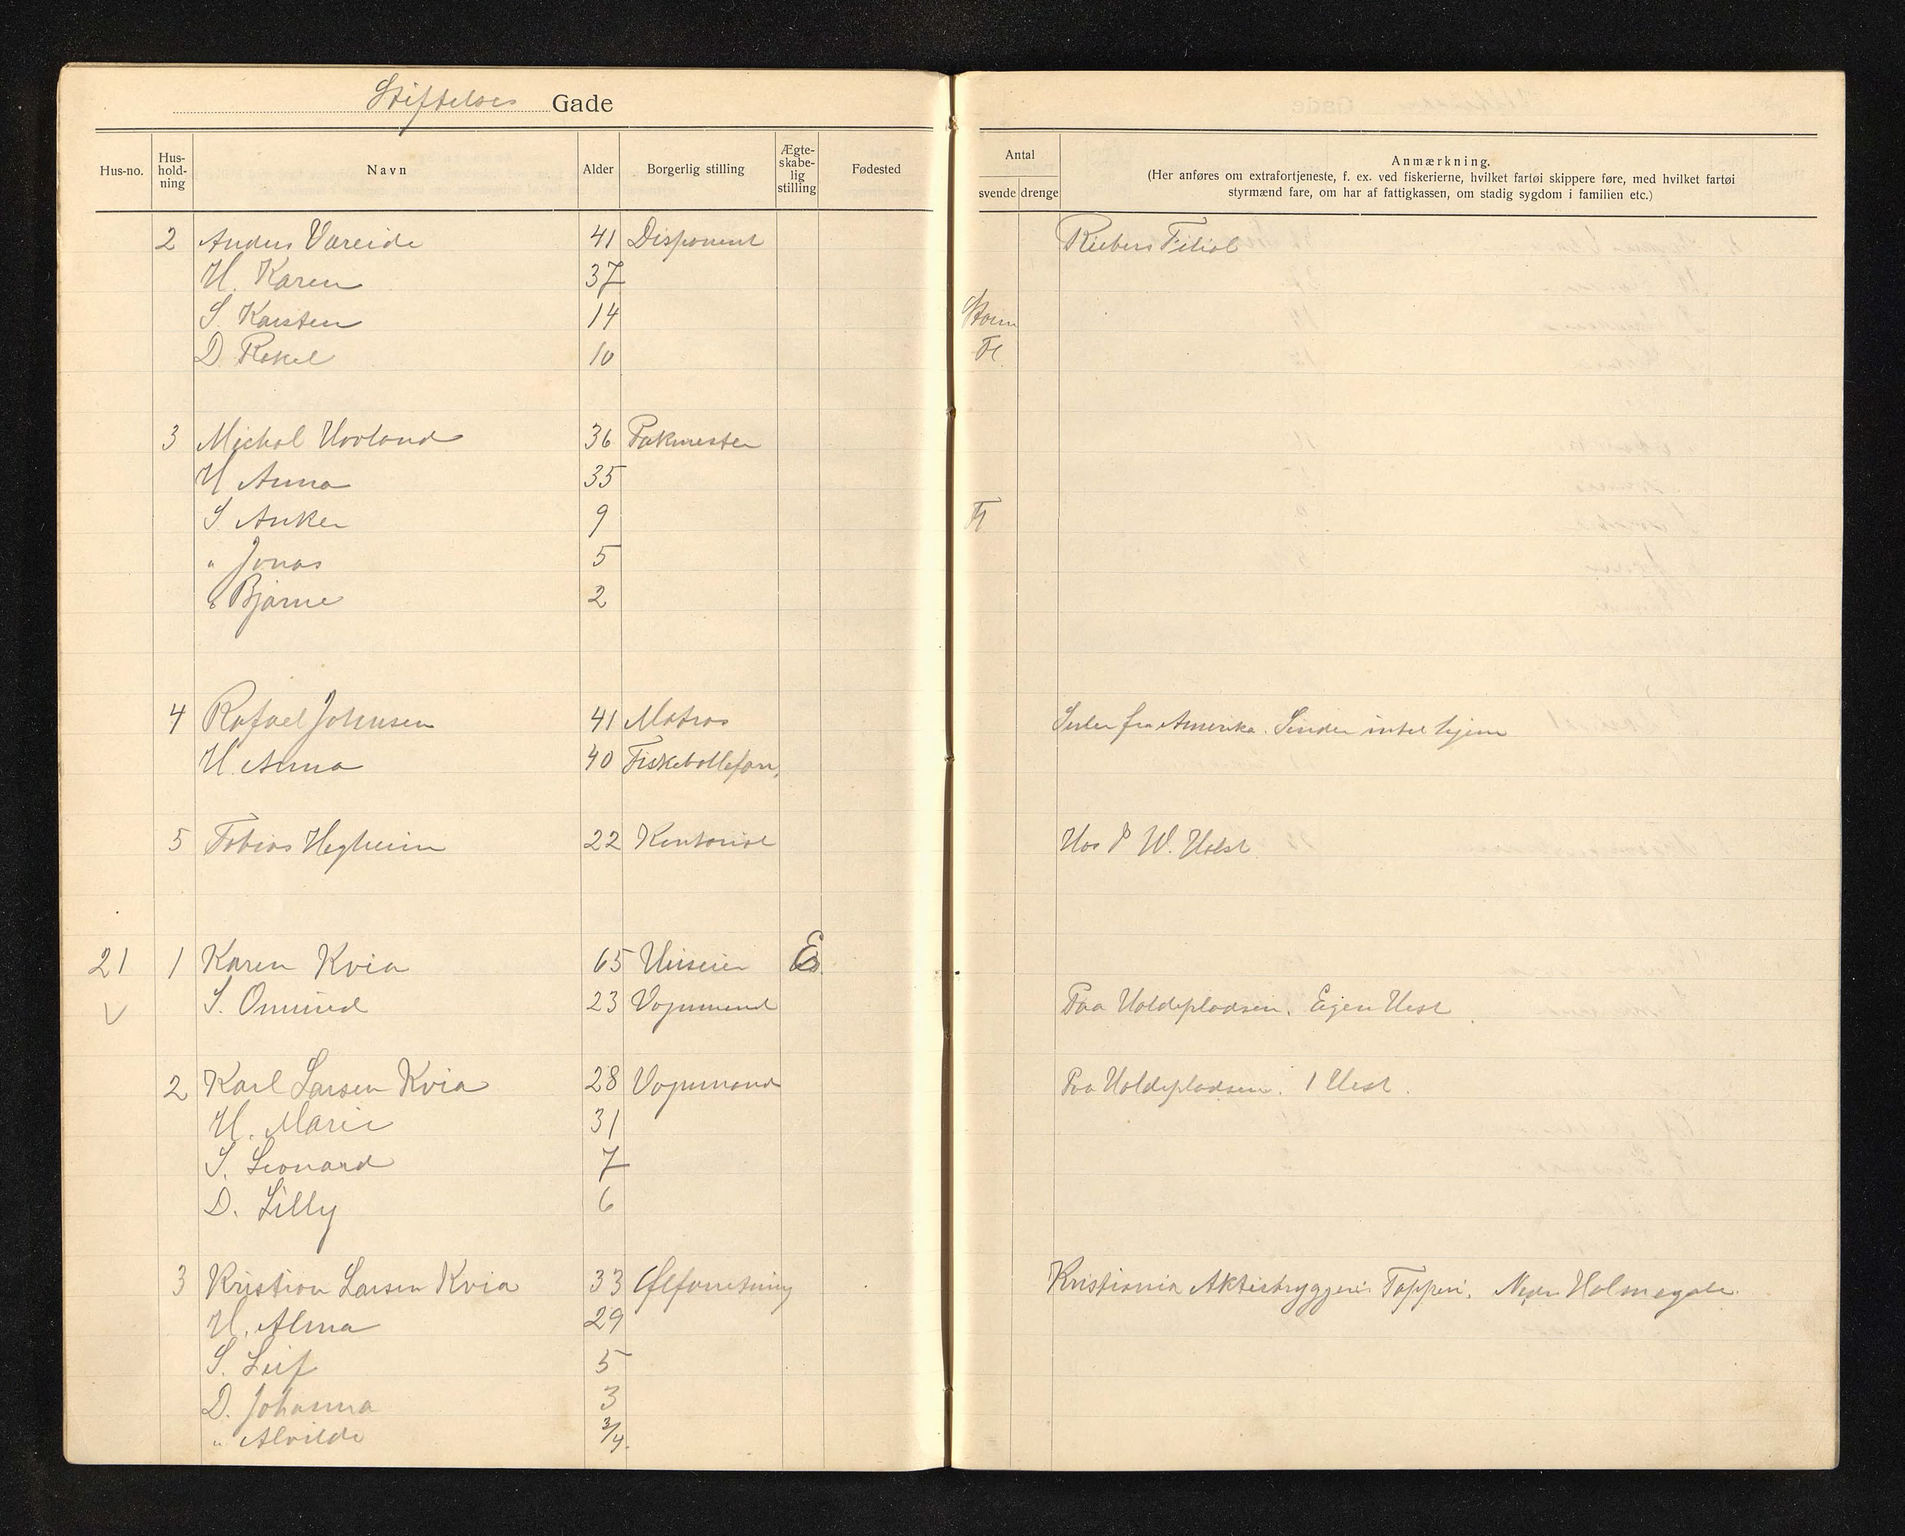 Stiftelses Gade
Hus-no. Hus-hold-ning Navn Alder Borgerlig stilling Ægte-skabe-lig stilling Fødested Antal svende drenge Anmærkning.
(Her anføres om extrafortjeneste, f. ex. ved fiskerierne, hvilket fartøi skippere føre, med hvilket fartøi
styrmænd fare, om har af fattigkassen, om stadig sygdom i familien etc.)
2 Anders Vareide 41 Disponent Riebers Filial
H. Karen 37
S. Karsten 14
D. Rakel 10 Fl.
3 Michal Hovland 36 Pakmester
H Anna 35
S. Anker 9 Fl
" Jonas 5
" Bjarne 2
4 Rafael Johnsen 41 Matros Seiler fra Amerika. Sender intet hjem
H. Anna 40 Fiskebolleforr,
5 Tobias Hegheim 22 Kontorist Hos P W. Holst
21 1 Karen Kvia 65 Huseier E
S. Ommund 23 Vognmand Paa Holdepladsen. Egen Hest.
2 Karl Larsen Kvia 28 Vognmand Paa Holdepladsen. 1 Hest.
H. Marie 31
S. Leonard 7
D. Lilly 6
3 Kristian Larsen Kvia 33 Ølforretning Kristiania Aktiebryggeri Tapperi. Nedre Holmegate.
H. Alma 29
S. Leif 5
D. Johanna 3
" Alvilde 3/4